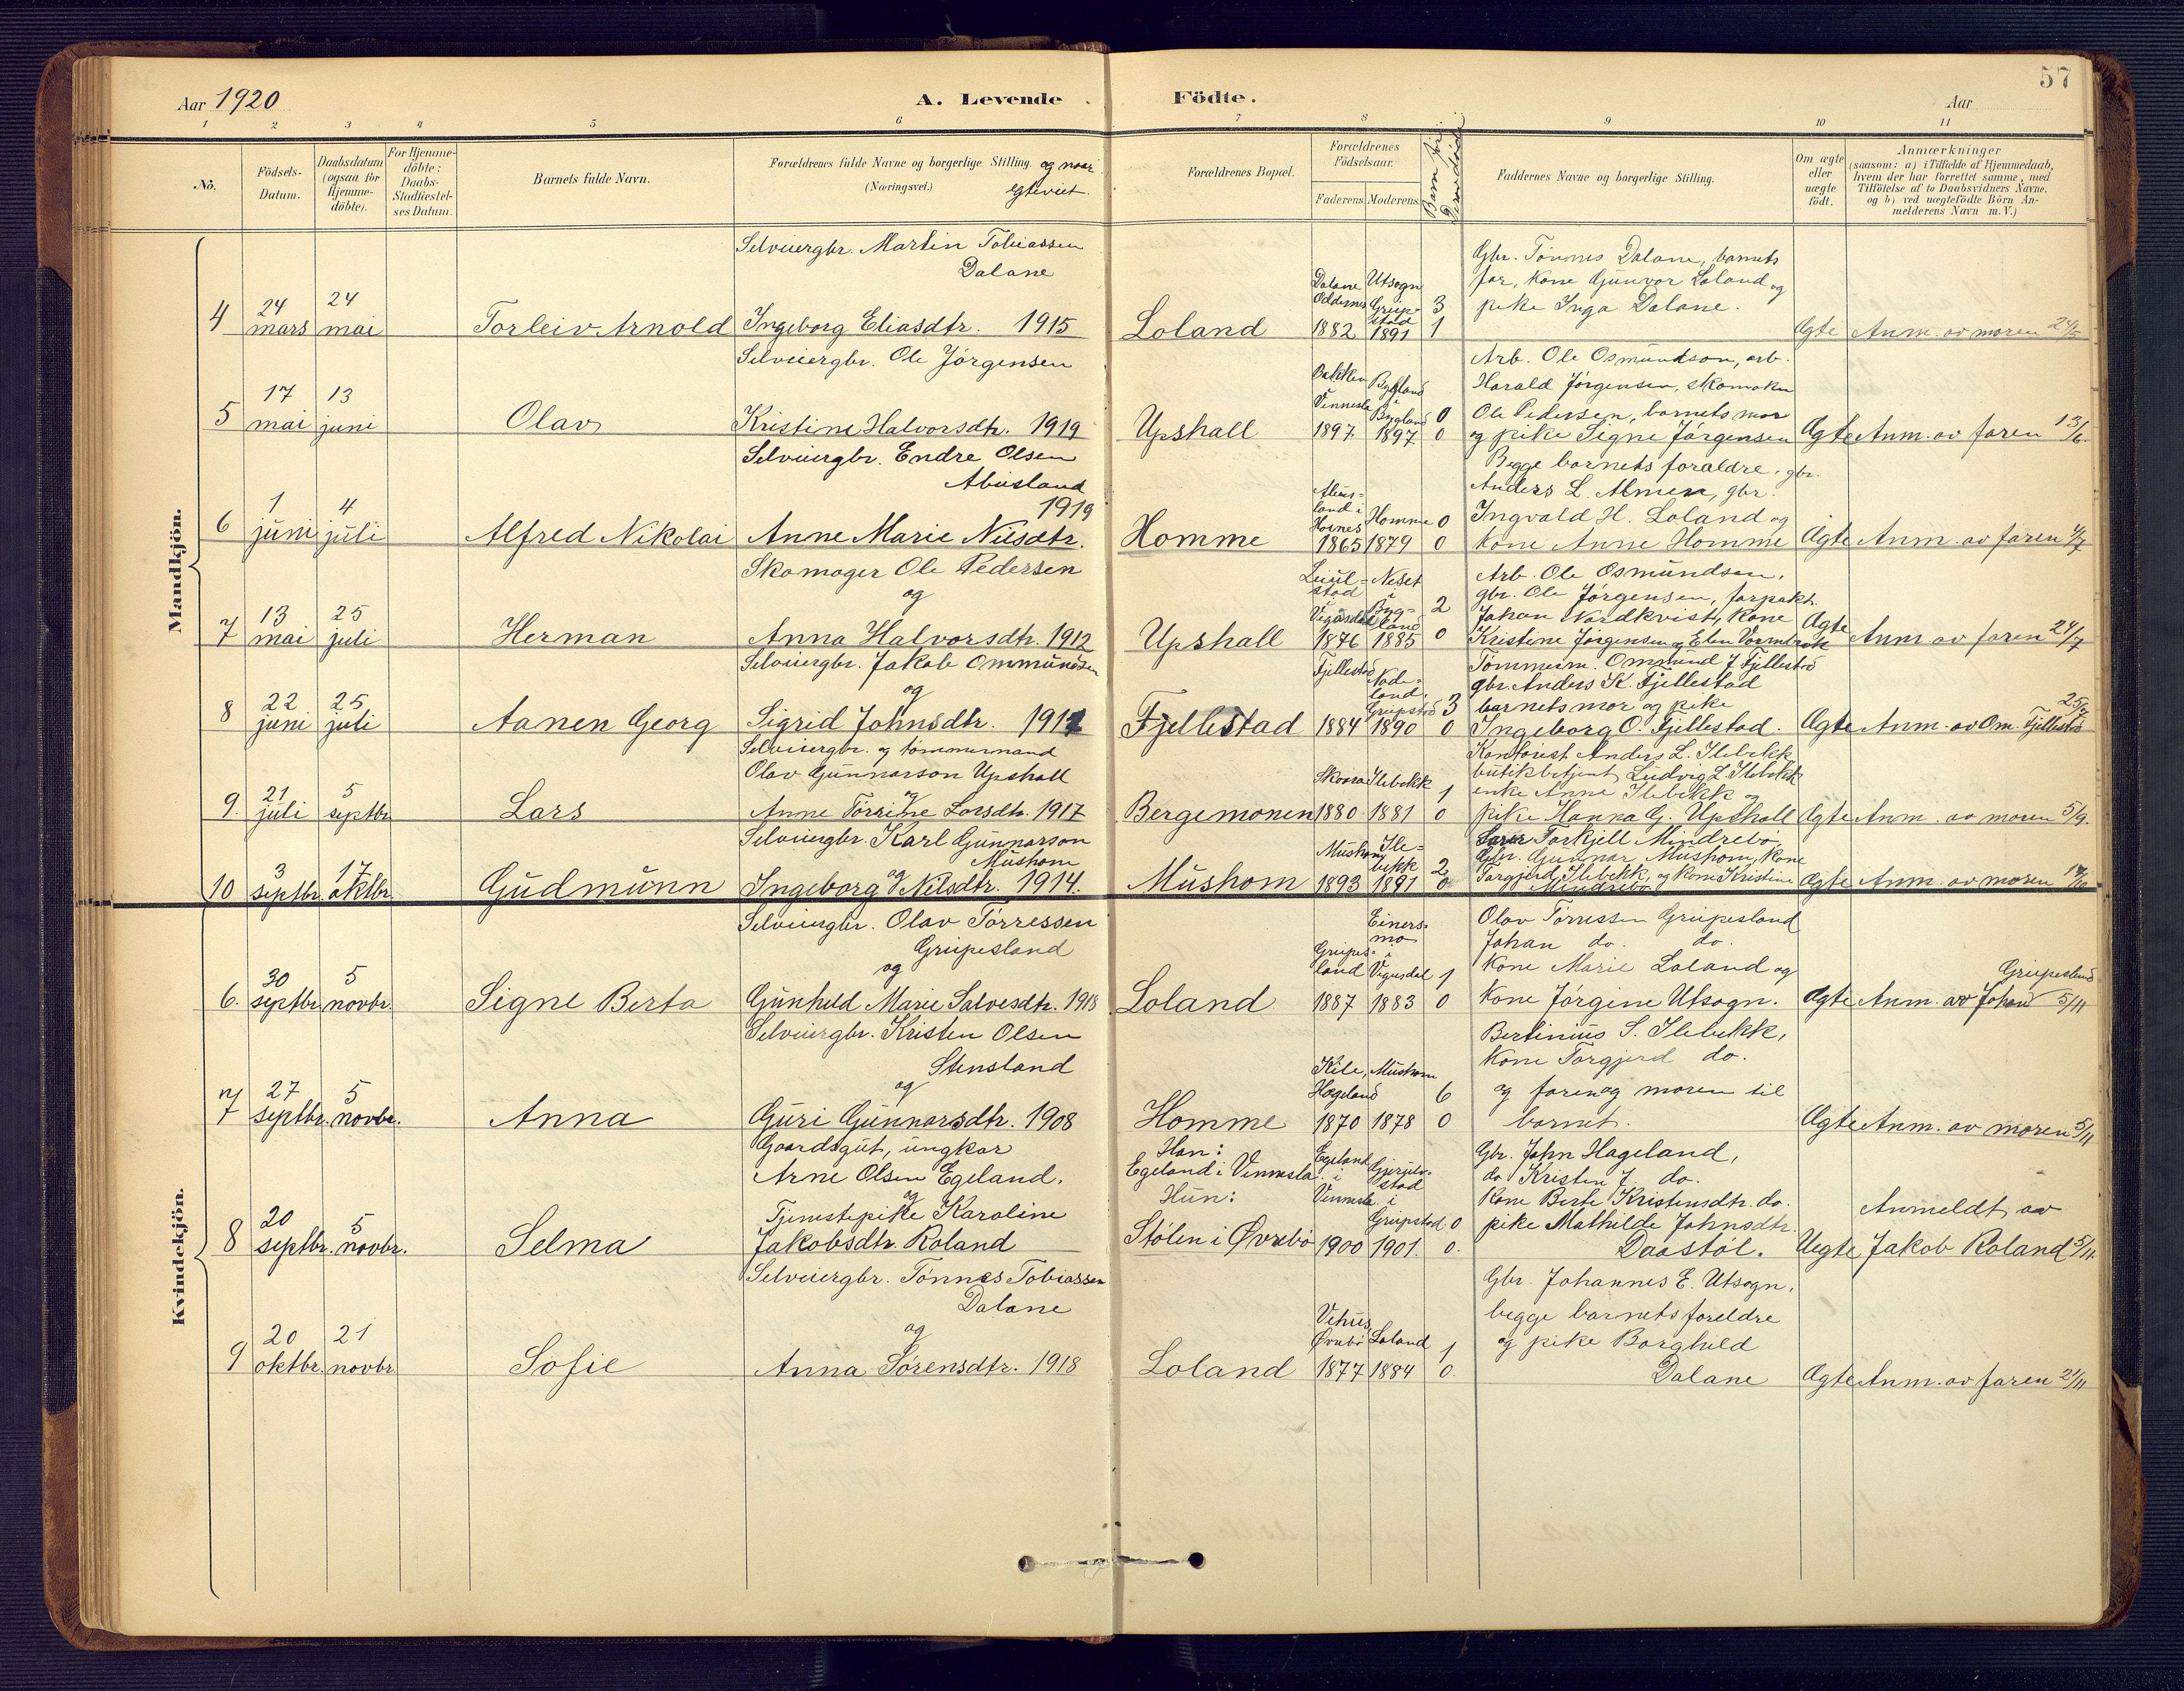 57
Aar 1920
A. Levende Födte.
Aar
1 2 3 4 5 6 7 8 9 10 11
No.
Födsels-Datum.
Daabsdatum (ogsaa for Hjemme-döbte).
For Hjemme-döbte: Daabs-Stadfæstel-ses Datum.
Barnets fulde Navn.
Forældrenes fulde Navne og borgerlige Stilling. og naar
(Næringsvei.) egteviet.
Forældrenes Bopæl.
Forældrenes Födselsaar.
Faderens Moderens
Faddernes Navne og borgerlige Stilling.
Om ægte eller uægte født.
Anmærkninger
(saasom: a) i Tilfælde af Hjemmedaab, hvem der har forrettet samme, med Tilföielse af to Daabsvidners Navne, og b) ved uægtefödte Börn An-melderens Navn m. V.)
Mandkjön.
4
24 mars
24 mai
Torleiv Arnold
Selveiergbr. Martin Tobiassen
Dalane
Ingeborg Eliasdtr. 1915
Loland
Dalane Oddernes 1882
Utsogn Gripstad 1891
3
1
Gbr. Tönnes Dalane, barnets
far, kone Gunvor Loland og
pike Inga Dalane.
Ægte
Anm. av moren 24/5
5
17 mai
13 juni
Olav
Selveiergbr. Ole Jörgensen
Kristine Halvorsdtr. 1919
Upshall
Bakken Vennesla 1897
Bygland i Bygland 1897
0
0
Arb. Ole Osmundson, arb.
Harald Jörgensen, skomaker
Ole Pedersen, barnets mor
og pike Signe Jörgensen
Ægte
Anm. av faren 13/6.
6
1 juni
4 juli
Alfred Nikolai
Selveiergbr. Endre Olsen
Abusland
1919
Anne Marie Nilsdtr.
Homme
Abus-land i Hornes 1865
Homme 1879
0
0
Begge barnets foraldre, gbr.
Anders L. Almen, gbr.
Ingvald H. Loland og
kone Anne Homme
Ægte
Anm. av faren 4/7
7
13 mai
25 juli
Herman
Skomager Ole Pedersen
og
Anna Halvorsdtr. 1912
Upshall
Vegusdal 1876
Neset i Byg-land 1885
2
0
Arb. Ole Osmundsen,
gbr. Ole Jörgensen, forpakt.
Johan Nordkvist, kone
Kristine Jörgensen og Elen
Ægte
Anm. av faren 24/7
8
22 juni
25 juli
Aanen Georg
Selveiergbr. Jakob Ommundsen
og
Sigrid Johnsdtr. 1911
Fjellestad
Fjellestad 1884
Node-land, Gripstad 1890
3
0
Tömmerm. Ommund J. Fjellestad
gbr. Anders K. Fjellestad
barnets mor og pike
Ingeborg O. Fjellestad.
Ægte
Anm. av Om. Fjellestad 25/7
9.
21 juli
5 septbr.
Lars
Selveiergbr. og tömmermand
Olav Gunnarson Upshall
og
Anne Törrine Larsdtr. 1917
Bergemonen
1880
Ilebekk 1881
1
0
Kontorist Anders L. Ilebekk
butikbetjent Ludvig L. Ilebekk
enke Anne Ilebekk og
pike Hanna G. Upshall
Ægte
Anm. av moren 5/9.
10
3 septbr.
17 oktbr.
Gudmunn
Selveiergbr. Karl Gunnarson
Mushom
og
Ingeborg Nilsdtr. 1914.
Mushom
Mushom 1893
Ile-bekk 1891
2
0
Torkjell Mindrebö,
Gbr. Gunnar Mushom, kone
Torgjerd Ilebekk, og kone Kristine
Mindrebö
Ægte
Anm. av moren 17/10
Kvindekjön.
6.
30 septbr.
5 novbr.
Signe Berta
Selveiergbr. Olav Törressen
Gripesland
og
Gunhild Marie Salvesdtr. 1918
Loland
Gripes-land 1887
Einers-mo i Vegusdal 1883
1
0
Olav Törressen Gripesland
Johan do. do.
Kone Marie Loland og
Kone Jörgine Utsogn.
Ægte
Anm. av Johan Gripesland 5/11
7
27 septbr.
5 novbr.
Anna
Selveiergbr. Kristen Olsen
Stensland
og
Guri Gunnarsdtr. 1908
Homme
Kile, Hægeland 1870
Mushom 1878
6
0
Bertinius S. Ilebekk,
Kone Torgjerd do.
og faren og moren til
barnet.
Ægte
Anm. av moren 5/11
8
20 septbr.
5 novbr.
Selma
Gaardsgut, ungkar
Arne Olsen Egeland.
og
Tjenestepike Karoline
Jakobsdtr. Roland
Han:
Egeland i Vennesla.
Hun:
Stölen i Øvrebö
Egeland i Vennesla 1900
i Gripstad 1901.
0
0.
Gbr. John Hageland,
do Kristen J. do.
Kone Berte Kristensdtr. do.
pike Mathilde Johnsdtr.
Daastöl.
Uegte
Anmeldt av
Jakob Roland 5/11.
9
20 oktbr.
21 novbr.
Sofie
Selveiergbr. Tönnes Tobiassen
Dalane
og
Anna Sörensdtr. 1918
Loland
Vehus, Øvrebö 1877
Loland 1884
1
0.
Gbr. Johannes E. Utsogn,
begge barnets foreldre
og pike Borghild
Dalane
Ægte
Anm. av faren 21/11